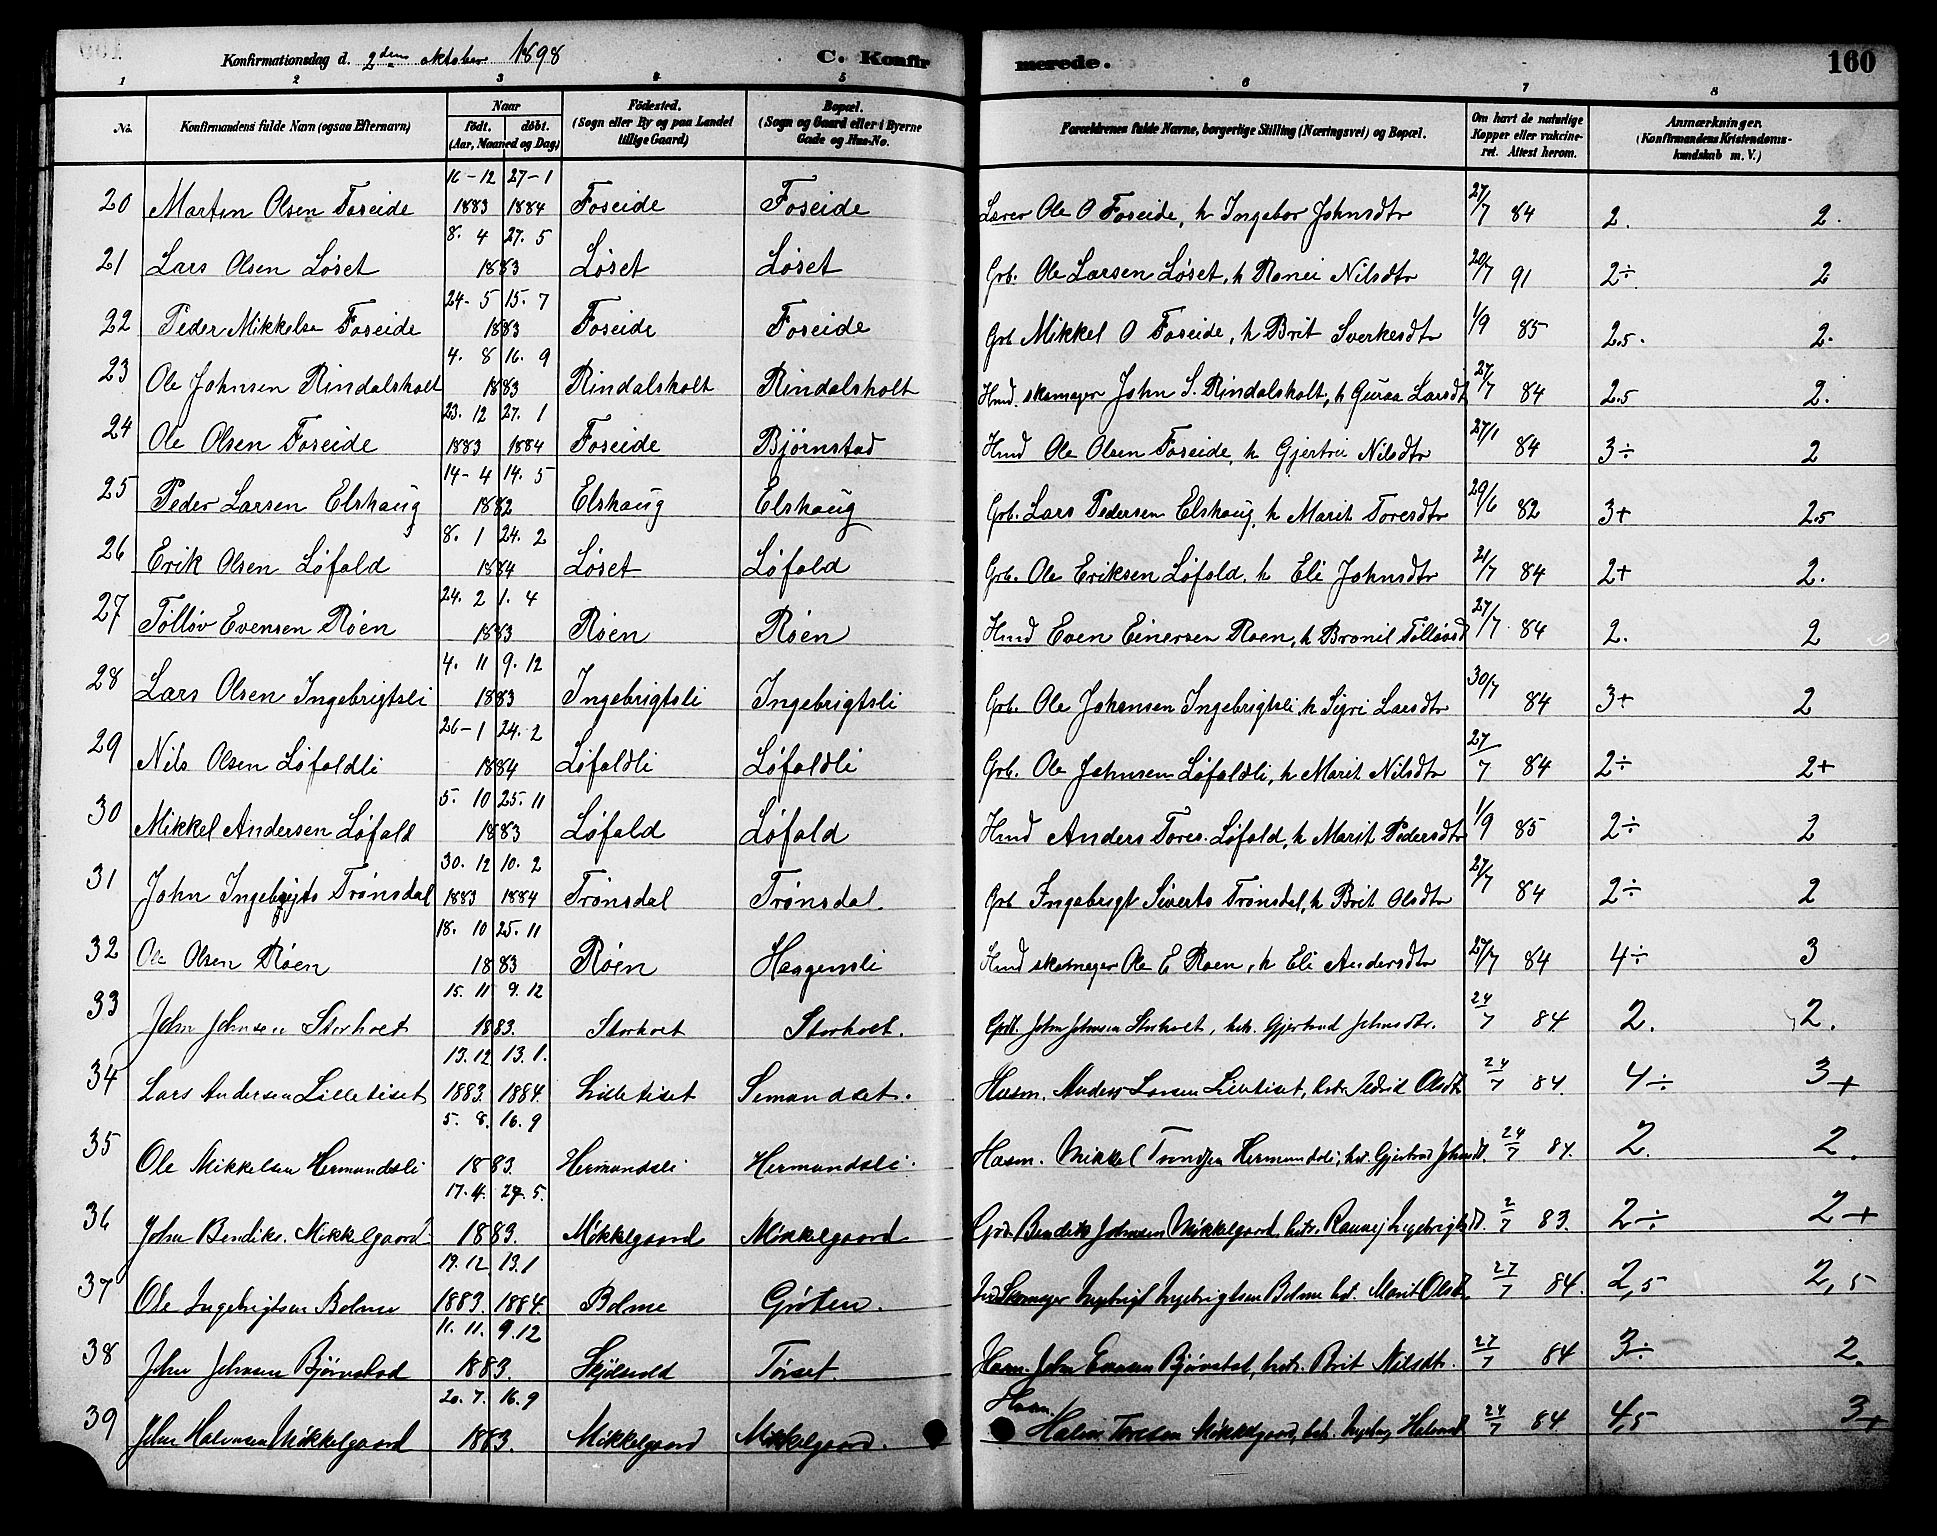 Konfirmationsdag d. 2den oktober 1898 C. Konfirmerede. 160
1 2 3 4 5 6 7 8
No. Konfirmandens fulde Navn (ogsaa Efternavn) Naar födt. döbt. (Aar, Maaned og Dag) Födested. (Sogn eller By og paa Landet tillige Gaard) Bopæl. (Sogn og Gaard eller i Byerne Gade og Hus-No. Forældrenes fulde Navne, borgerlige Stilling (Næringsvei) og Bopæl. Om havt de naturlige Kopper eller vakcineret. Attest herom. Anmærkninger. (Konfirmandens Kristendomskundskab m. V.)
20 Marten Olsen Foseide 16-12 1883 27-1 1884 Foseide Foseide Lærer Ole O Foseide, h Ingebor Johnsdtr 27/7 84 2. 2.
21 Lars Olsen Løset 8. 4 27. 5 1883 Løset Løset Grb. Ole Larsen Løset, h Ranei Nilsdtr 20/7 91 2÷ 2
22 Peder Mikkelse Foseide 24-5 15. 7 1883 Foseide Foseide Grb Mikkel O Foseide, h Brit Sverkesdtr 1/9 85 2.5. 2.
23 Ole Johnsen Rindalsholt 4. 8 16. 9 1883 Rindalsholt Rindalsholt Hmd. skomager John S. Rindalsholt, h Guraa Larsdt 27/7 84 2.5 2.
24 Ole Olsen Foseide 23. 12 1883 27. 1 1884 Foseide Bjørnstad Hmd Ole Olsen Foseide, h Gjertru Nilsdtr 27/1 84 3÷ 2
25 Peder Larsen Elshaug 14-4 14. 5 1882 Elshaug Elshaug Grb. Lars Pedersen Elshaug, h Marit Toresdtr 29/6 82 3+ 2.5
26 Erik Olsen Løfald 8. 1 24. 2 1884 Løset Løfald Grb. Ole Eriksen Løfald, h Eli Johnsdtr 21/7 84 2+ 2.
27 Tølløv Evensen Røen 24. 2 1. 4 1883 Røen Røen Hmd Even Einersen Roen, h Bronil Tølløvsd 27/7 84 2. 2
28 Lars Olsen Ingebrigtsli 4. 11 9. 12 1883 Ingebrigtsli Ingebrigtsli Grb. Ole Johansen Ingebrigtsli h Sigri Larsdtr 30/7 84 3+ 2
29 Nils Olsen Løfaldli 26-1 24. 2 1884 Løfaldli Løfaldli Grb. Ole Johnsen Løfaldli, h Marit Nilsdtr 27/7 84 2÷ 2+
30 Mikkel Andersen Løfald 5. 10 25. 11 1883 Løfald Løfald Hmd Anders Tores. Løfald, h Marit Pedersdtr 1/9 85 2÷ 2
31 John Ingebrigts Trønsdal 30. 12 1883 10. 2 1884 Trønsdal Trønsdal. Grb Ingebrigt Siverts Trønsdal, h Brit Olsdtr 27/7 84 2÷ 2
32 Ole Olsen Røen 18. 10 25. 11 1883 Røen Haagensli Hmd skomager Ole E Roen, h Eli Andersdtr 27/7 84 4÷ 3
33 John Johnsen Storholt 15. 11 9. 12 1883. Storholt Storholt. Grb. John Johnsen Storholt, h. Gjertrud Johnsdtr. 24/7 84 2. 2.
34 Lars Andersen Lilletiset 13. 12 1883. 13. 1. 1884. Lilletiset Semundset. Husm. Anders Larsen Lilletiset, Olsdt 24/7 84. 4÷ 3+
35 Ole Mikkelsen Hermundsli 5. 8. 16. 9 1883. Hermundsli Hermundsli. Husm. Mikkel Hermundsli, h. Gjertrud Johnsdt. 24/7 84. 2. 2.
36 John Bendiks. Mikkelgaard 17. 4. 27. 5. 1883. Mikkelgaard Mikkelgaard Grb. Bendik Johnsen Mikkelgaard, Rannej Ingebrigtsd. 2/7 83. 2÷ 2+
37 Ole Ingebrigtsen Bolme 19. 12. 1883. 13. 1 1884. Bolme Grøten. Skomager Ingebrigt Ingebrigtsen Bolme h. Marit Olsd. 27/7 84. 2,5 2,5
38 John Johnsen Bjørnstad 11. 11. 9. 12 1883. Skjølsvold Tørset. Husm. John Bjørnstad, Brit Nilsdtr. 27/7 84 3÷ 2.
39 John Halvorsen Mikkelgaard 20. 7. 16. 9 1883. Mikkelgaard Mikkelgaard. Husm. Halvor Toresen Mikkelgaard, Ingebor Halvorsd 24/7 84. 4,5 3+